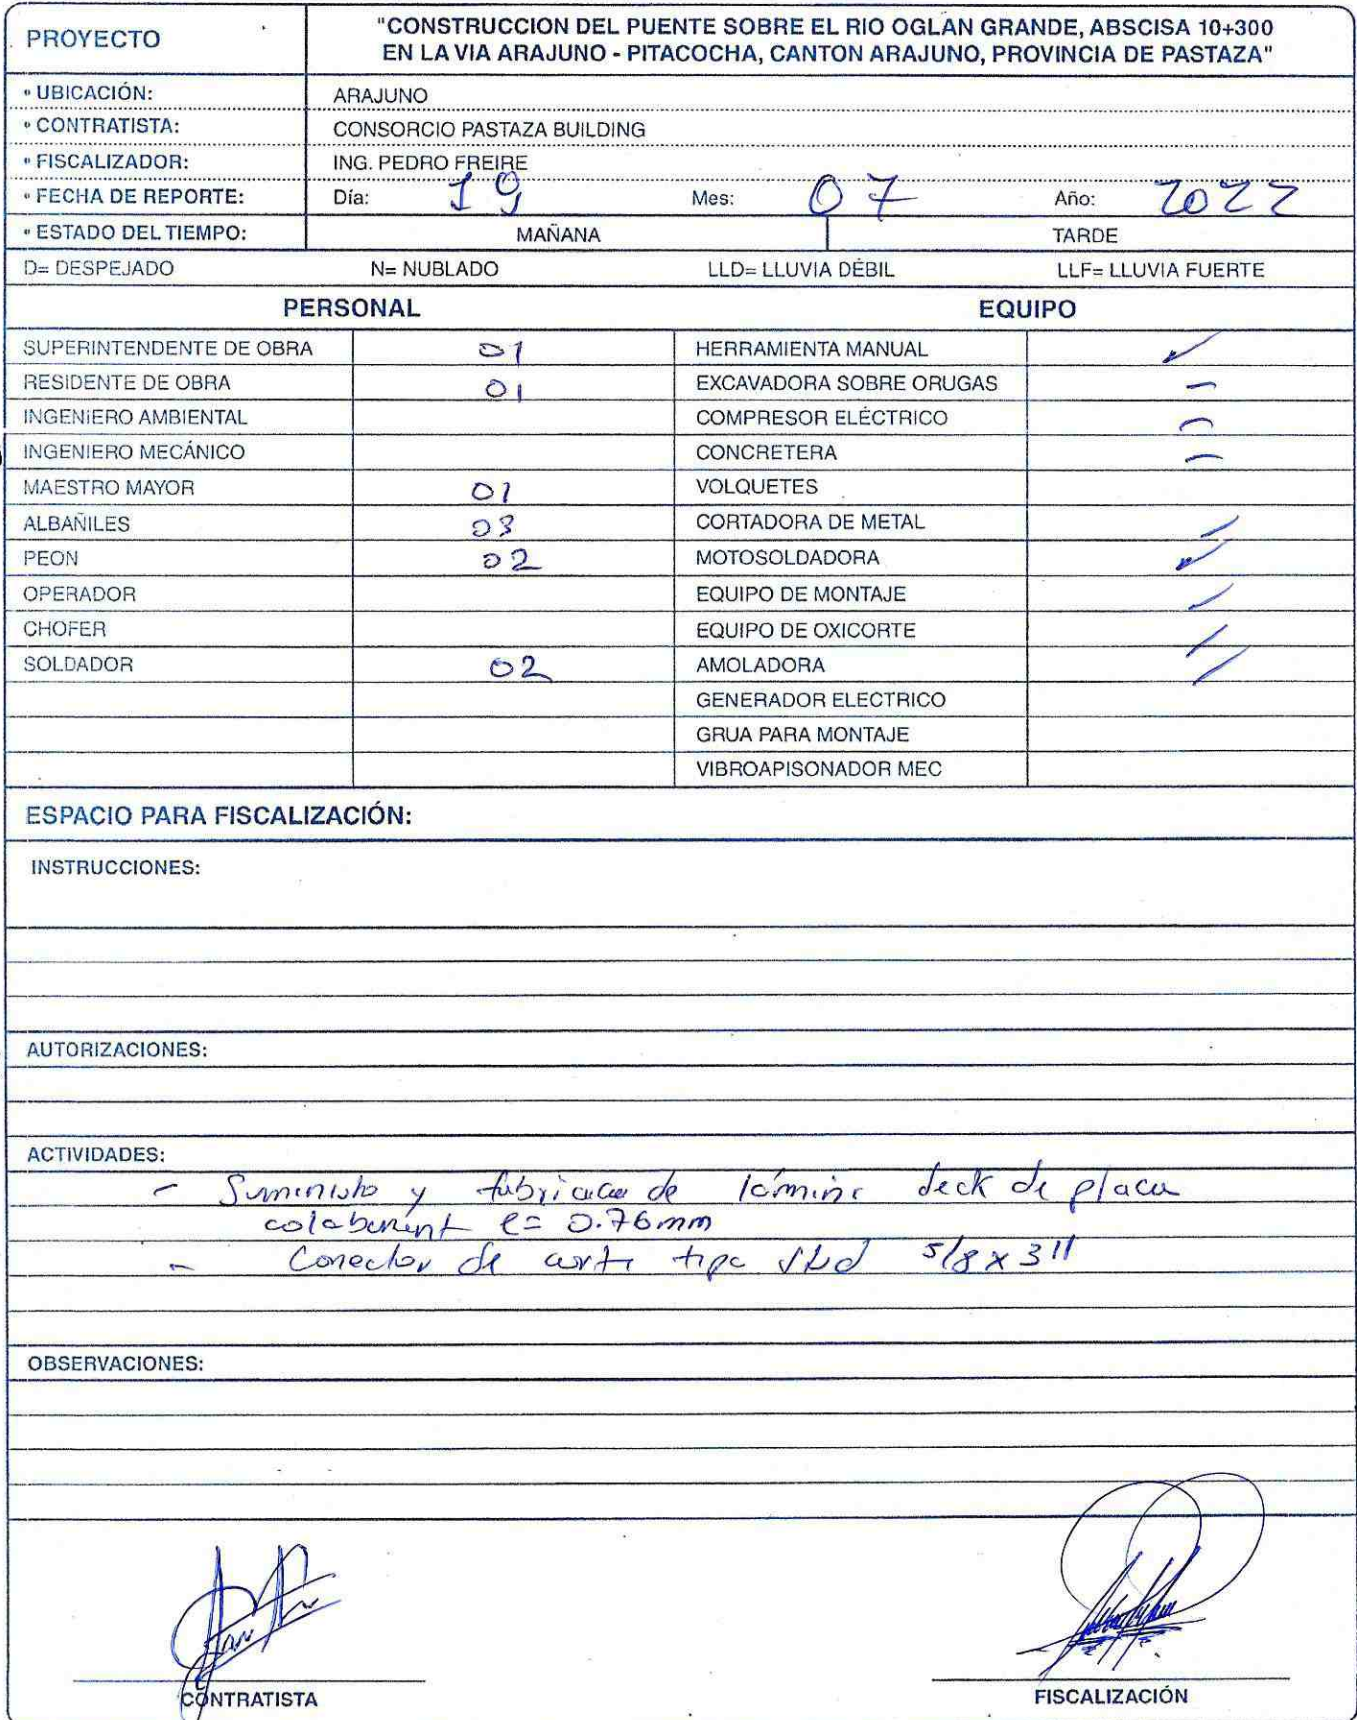 PROYECTO
"CONSTRUCCION DEL PUENTE SOBRE EL RIO OGLAN GRANDE, ABSCISA 10+300
EN LA VIA ARAJUNO - PITACOCHA, CANTON ARAJUNO, PROVINCIA DE PASTAZA"
• UBICACIÓN: ARAJUNO
• CONTRATISTA: CONSORCIO PASTAZA BUILDING
• FISCALIZADOR: ING. PEDRO FREIRE
• FECHA DE REPORTE: Día: 19 Mes: 07 Año: 2022
• ESTADO DEL TIEMPO: MAÑANA TARDE
D= DESPEJADO N= NUBLADO LLD= LLUVIA DÉBIL LLF= LLUVIA FUERTE
PERSONAL EQUIPO
SUPERINTENDENTE DE OBRA 01 HERRAMIENTA MANUAL ✓
RESIDENTE DE OBRA 01 EXCAVADORA SOBRE ORUGAS –
INGENIERO AMBIENTAL COMPRESOR ELÉCTRICO –
INGENIERO MECÁNICO CONCRETERA –
MAESTRO MAYOR 01 VOLQUETES
ALBAÑILES 03 CORTADORA DE METAL ✓
PEON 02 MOTOSOLDADORA ✓
OPERADOR EQUIPO DE MONTAJE ✓
CHOFER EQUIPO DE OXICORTE ✓
SOLDADOR 02 AMOLADORA ✓
GENERADOR ELECTRICO
GRUA PARA MONTAJE
VIBROAPISONADOR MEC
ESPACIO PARA FISCALIZACIÓN:
INSTRUCCIONES:
AUTORIZACIONES:
ACTIVIDADES:
- Suministo y fabricacion de lámina deck de placa
colaborant e= 0.76mm
- Conector de corte tipo stud 5/8 x 3"
OBSERVACIONES:
CONTRATISTA FISCALIZACIÓN